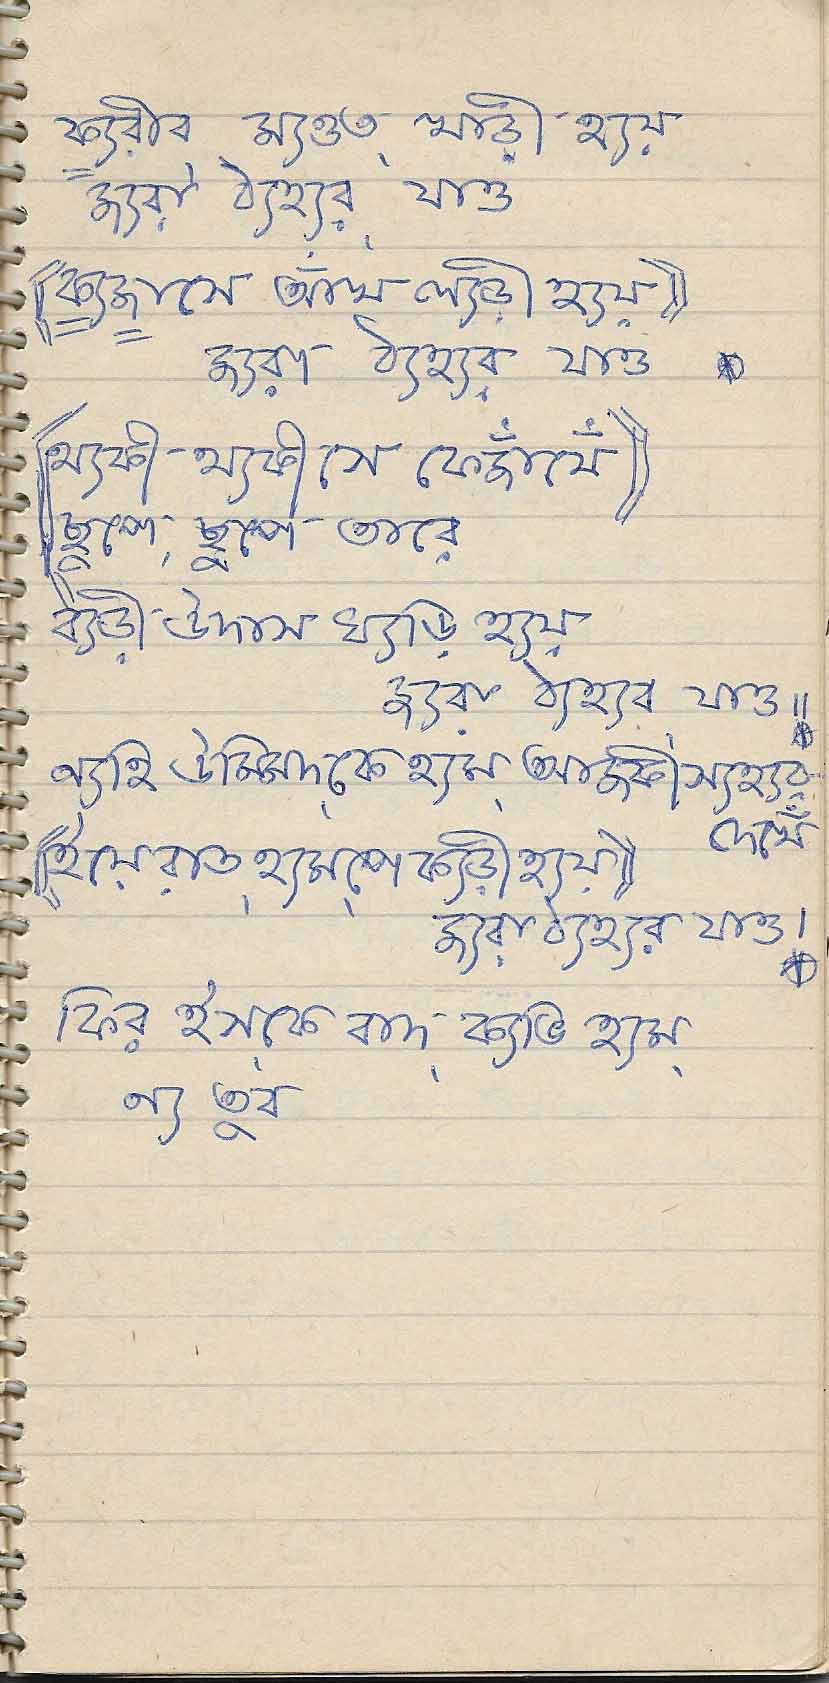 ক্যরীব ম্যওত্ খাড়ী হ্যয়
জ্যরা ঠ্যহ্যর্ যাও
((ক্যজ়াসে আঁখ ল্যড়ী হ্যয়))
জ্যরা ঠ্যহ্যর যাও
((থ্যকী-থ্যকী সে ফেজাঁমেঁ))
ছুপে, ছুপে তারে
ব্যড়ী উদাস ঘ্যড়ি হ্যয়
জ্যরা ঠ্যহ্যর যাও॥
ন্যহি উমিদ্কে হ্যম্ আজকী স্যহ্যর
দেখেঁ
((ইয়ে রাত্ হ্যম্পে ক্যড়ী হ্যয়))
জ্যরা ঠ্যহ্যর যাও।
ফির ইস্কে বাদ্ ক্যভি হ্যম্
ন্য তুব